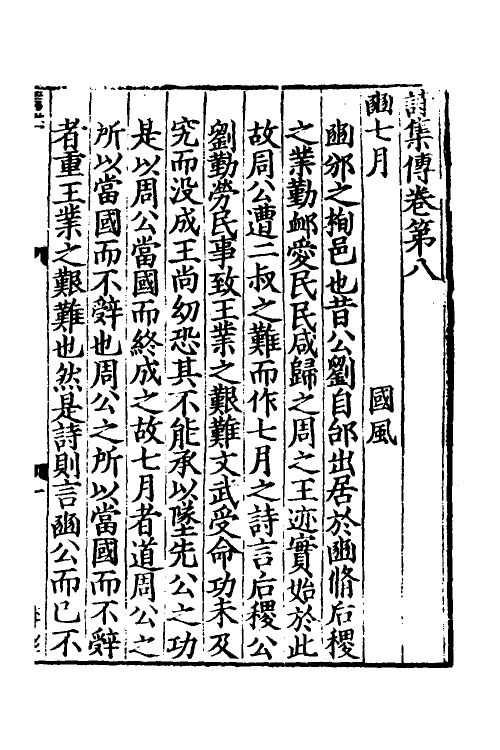 詩集傳卷第八
豳七月　國風
豳邠之栒邑也昔公劉自邰出居於豳脩后稷
之業勤卹愛民民咸歸之周之王迹實始於此
故周公遭二叔之難而作七月之詩言后稷公
劉勤勞民事致王業之艱難文武受命功未及
究而没成王尚幼恐其不能承以墜先公之功
是以周公當國而終成之故七月者道周公之
所以當國而不辤也周公之所以當國而不辤
者重王業之艱難也然是詩則言豳公而已不